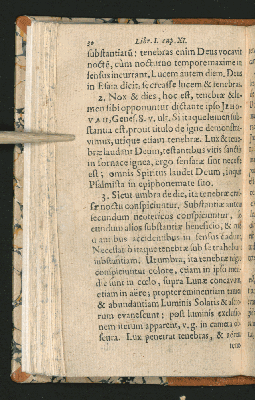 30 Libr. I. cap. XI.
substantiatũ: tenebras enim Deus vocavit
noctē, cùm nocturno tempore maxime in
sensus incurrant, Lucem autem diem, Deus
in Esaia dicit, se creasse lucem & tenebras.
2. Nox & dies, hoc est, tenebræ & lu-
men sibi opponuntur dictante ipso JEHO-
VAH, Genes. 8. v. ult. Si itaque lumen sub-
stantia est, prout titulo de igne demonstra-
vimus, utique etiam tenebræ. Lux & tene-
bræ laudam Deum, testantibus viris sanctis
in fornace ignea, ergo sensatæ sint necesse
est; omnis Spiritus laudet Deum, inquit
Psalmista in epiphonemate suo.
3. Sicut umbra de die, ita tenebræ en-
sæ noctu conspiciuntur, Substantiæ autem
secundum neotericos conspiciuntur,
eundum alios substantiæ beneficio, &
auribus accidentibus in sensus cadunt,
Necesse est itaque tenebras
substantiam. Ut umbra, ita tenebræ nigro
conspiciuntur colore, etiam in ipsa me-
die sunt in cœlo, supra Lunæ concavum
etiam in aëre; propter eminentiam tamen
& abundantiam Luminis Solaris & alio-
rum evanescunt; post luminis exclusio-
nem iterum apparent, v. g. in camera ob-
scura. Lux penetrat tenebras, & aërem